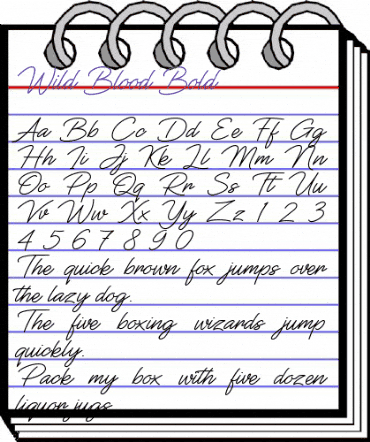 Wild Blood Bold
Aa Bb Cc Dd Ee Ff Gg
Hh Ii Jj Kk Ll Mm Nn
Oo Pp Qq Rr Ss Tt Uu
Vv Ww Xx Yy Zz 1 2 3
4 5 6 7 8 9 0
The quick brown fox jumps over
the lazy dog.
The five boxing wizards jump
quickly.
Pack my box with five dozen
liquor jugs